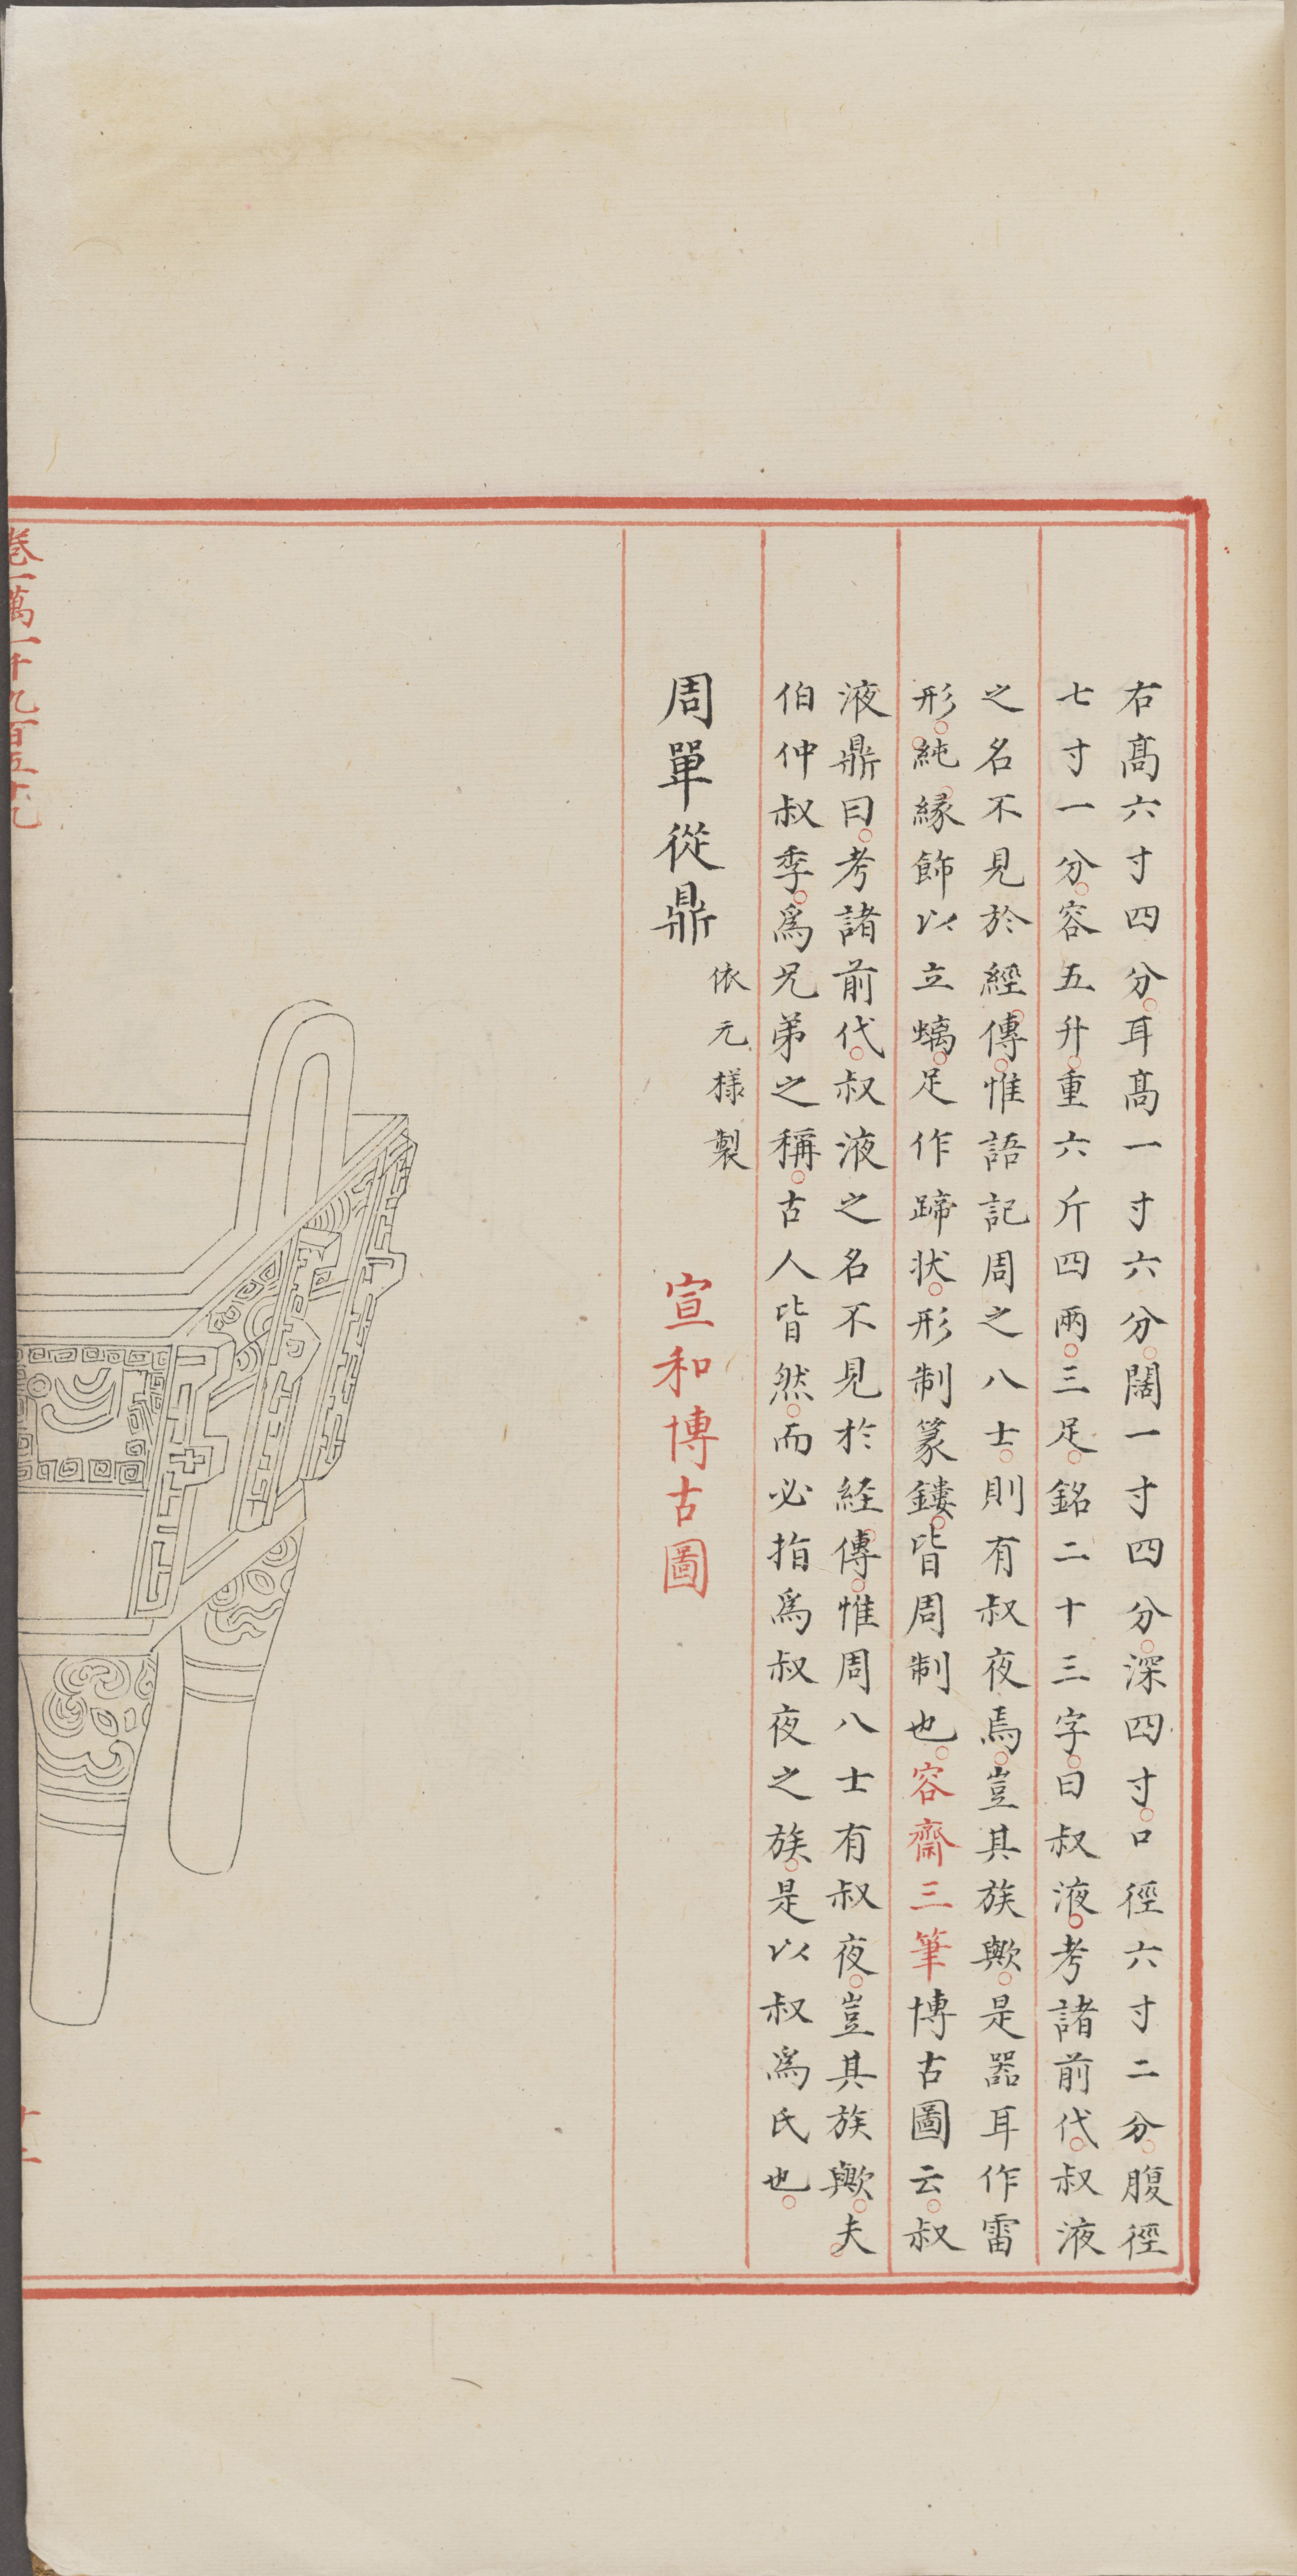 右高六寸四分耳高一寸六分闊一寸四分深四寸口徑六寸二分腹徑
七寸一分容五升重六斤四兩三足銘二十三字曰叔液考諸前代叔液
之名不見於經傳惟語記周之八士則有叔夜焉豈其族歟是器耳作雷
形純緣飾以立螭足作蹄状形制篆鏤皆周制也容齋三筆博古圖云叔
液鼎曰考諸前代叔液之名不見於経傳惟周八士有叔夜豈其族歟夫
伯仲叔季爲兄弟之稱古人皆然而必指爲叔夜之族是以叔爲氏也
周單從鼎
依元様製
宣和博古圖
卷一萬一千九百五十九
十二